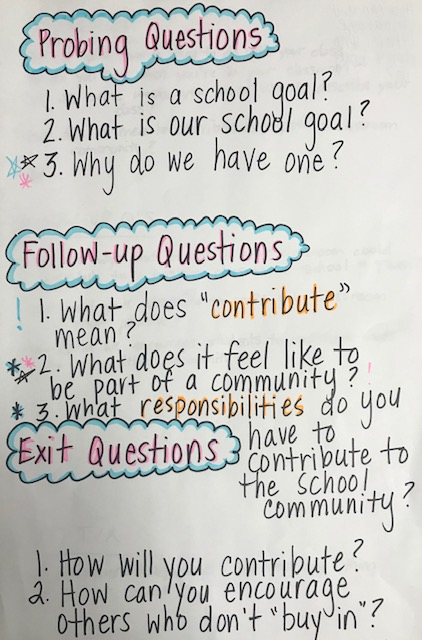 Probing Questions
1. What is a school goal?
2. What is our school goal?
3. Why do we have one?
Follow-up Questions
! 1. What does "contribute"
mean?
2. What does it feel like to
be part of a community? !
3. What responsibilities do you
have to
contribute to
the school
community?
Exit Questions
1. How will you contribute?
2. How can you encourage
others who don't "buy in"?